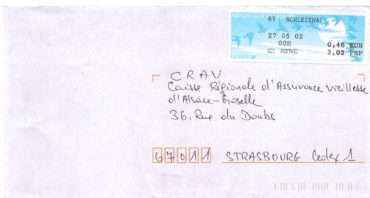 67 SCHLEITHAL
27 05 02
00H 0,46 EUR
3,02 FRF
C R A V
Caisse Régionale d'Assurance vieillesse
d'Alsace-Moselle
36, Rue du Doubs
67011 STRASBOURG Cedex 1